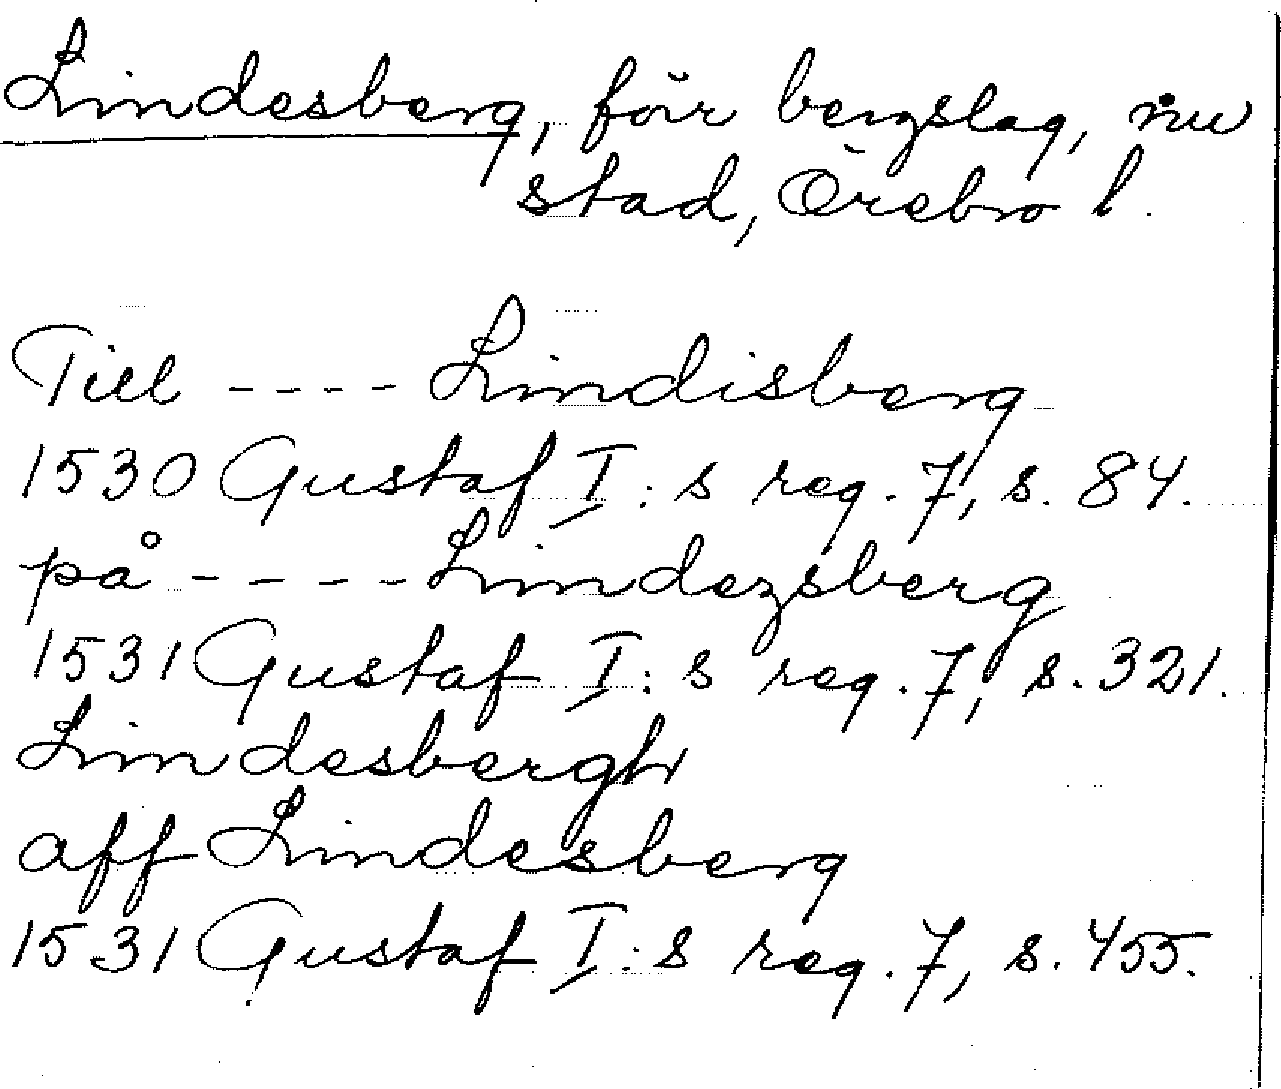 Lindesberg, förr bergslag, nu
stad, Örebro l.
Till ---- Lindisberg
1530 Gustaf I:s reg. 7, s. 84.
på ---- Lindezsberg
1531 Gustaf I:s reg. 7, s. 321.
Lindesbergh
aff Lindesberg
1531 Gustaf I:s reg. 7, s. 455.